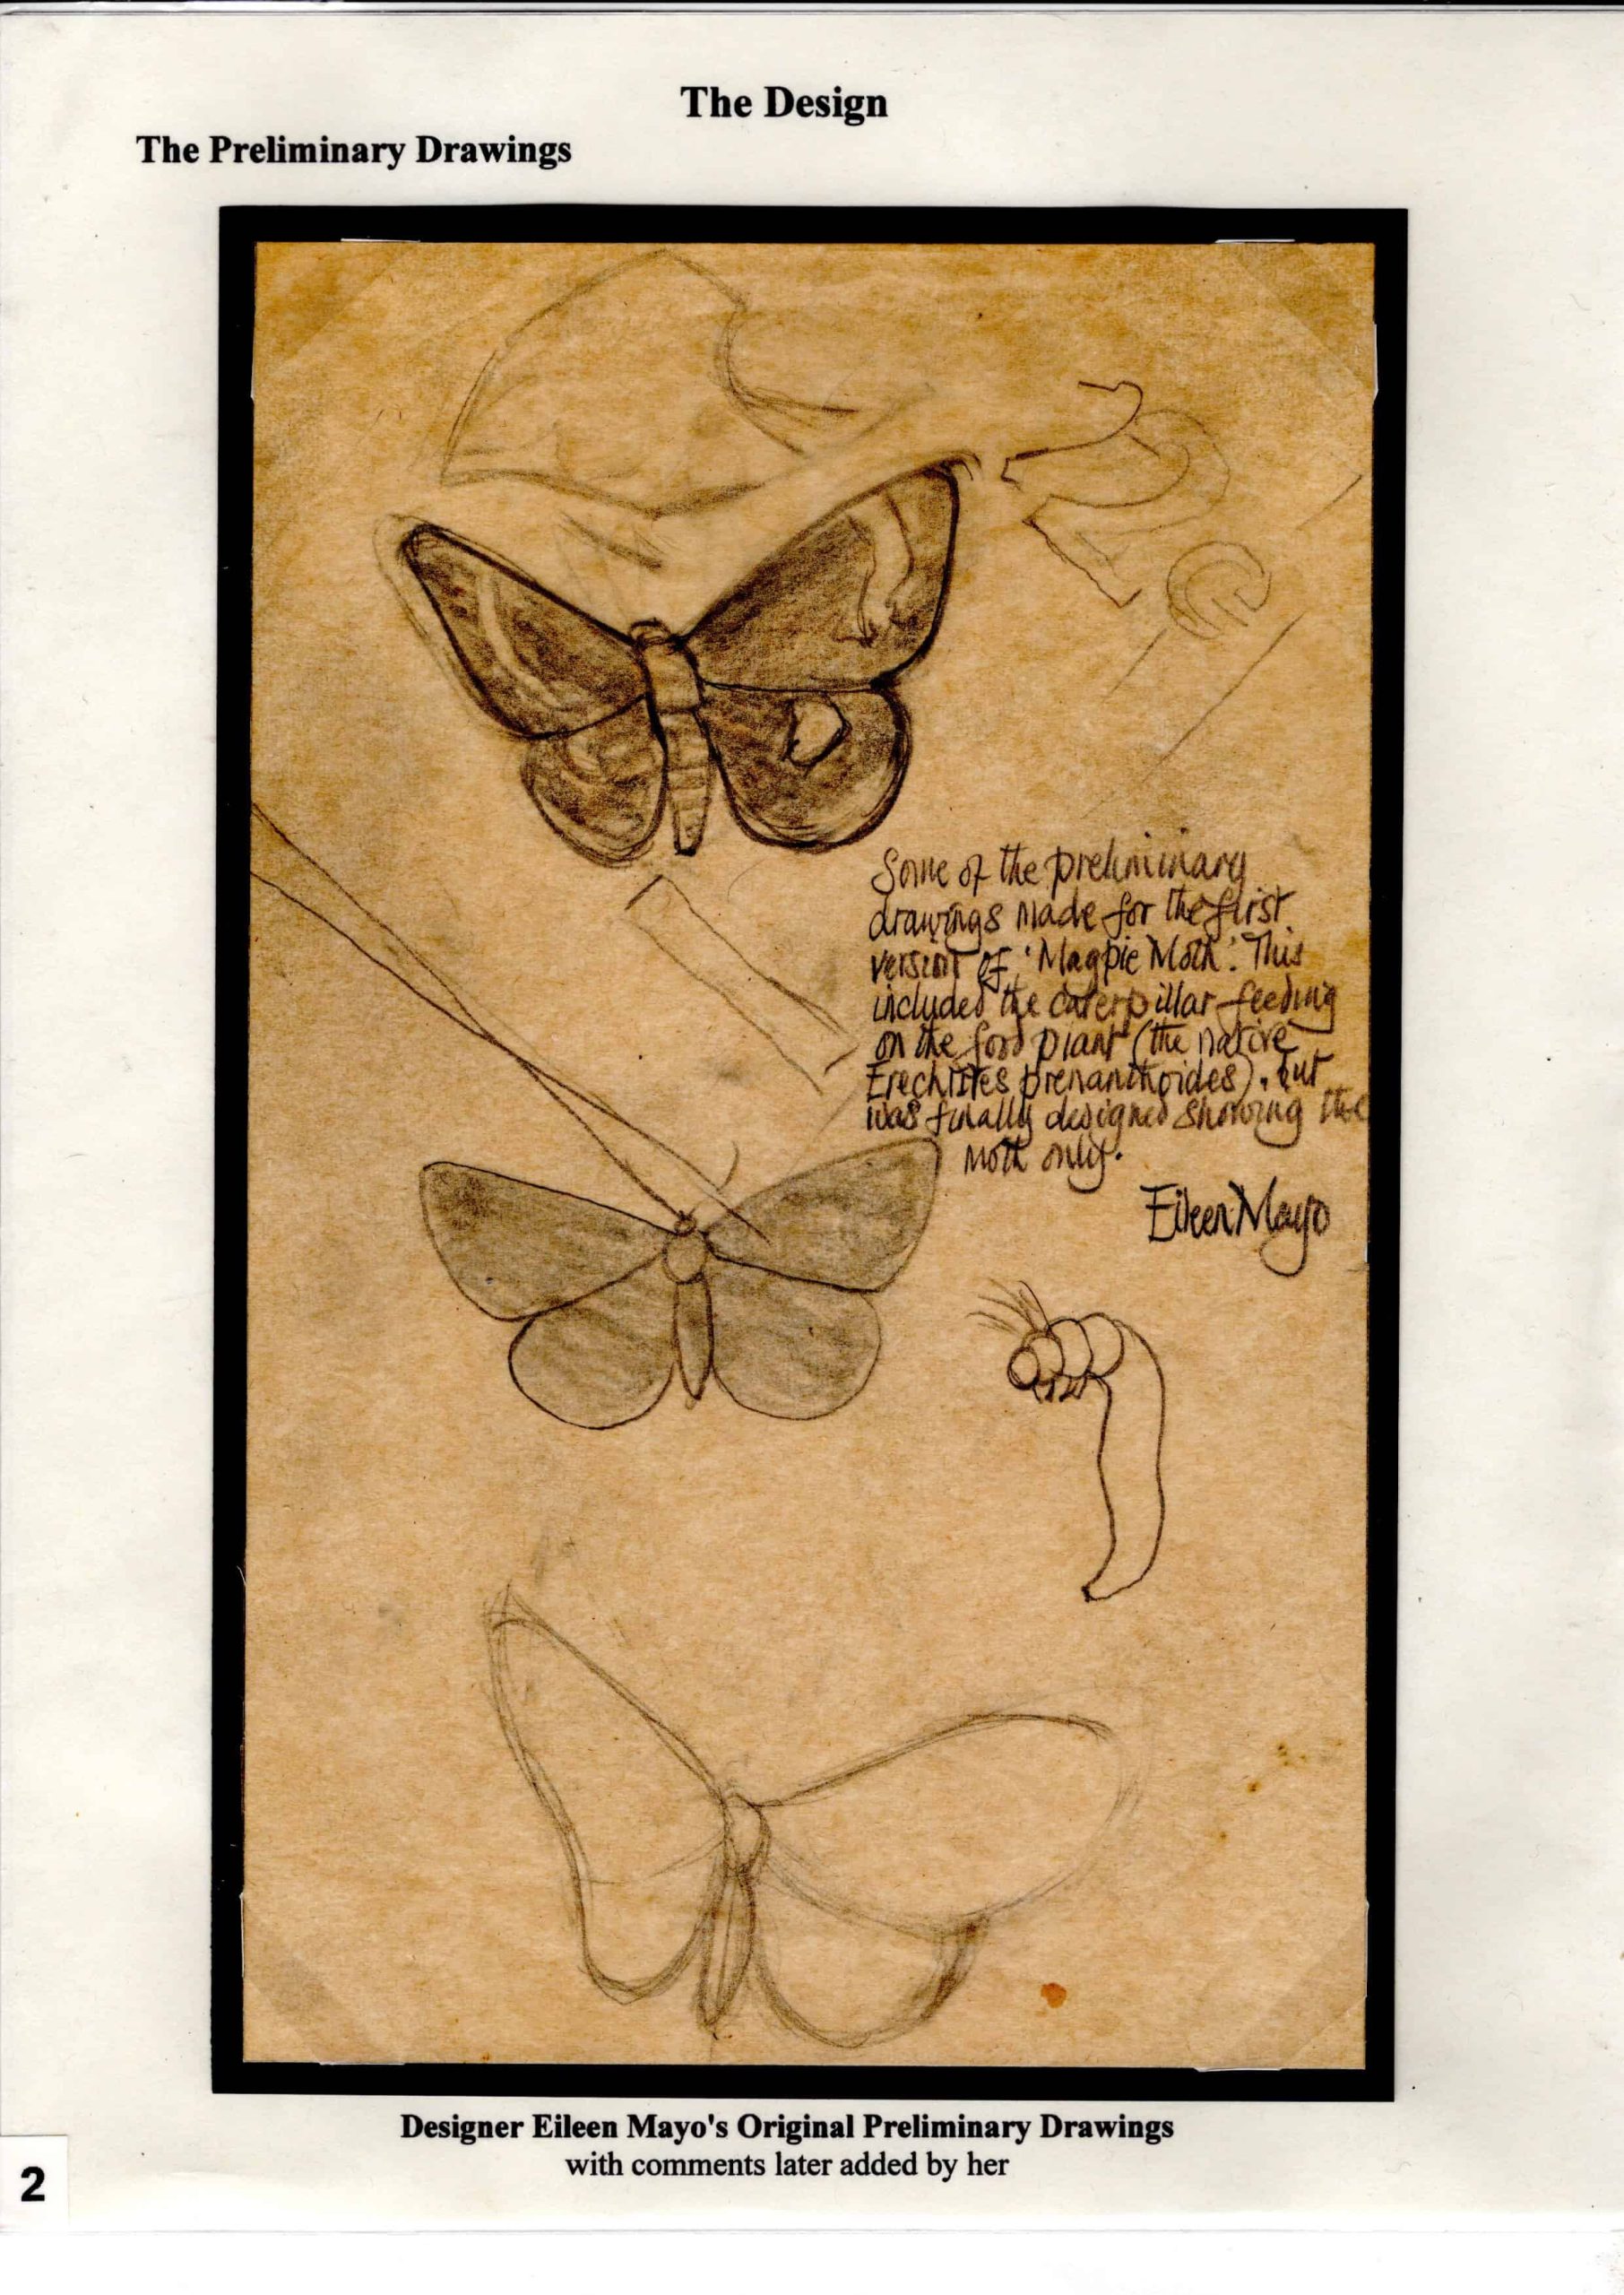 The Design
The Preliminary Drawings
Some of the preliminary
drawings made for the first
version of 'Magpie Moth'. This
included the caterpillar feeding
on the food plant (the native
Erechtites prenanthoides), but
was finally designed showing the
moth only.
Eileen Mayo
Designer Eileen Mayo's Original Preliminary Drawings
with comments later added by her
2